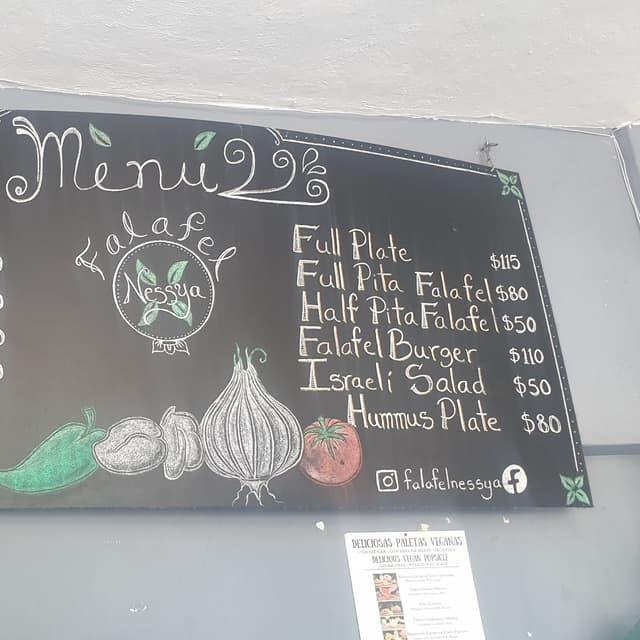 Menú
Falafel
Nessya
Full Plate $115
Full Pita Falafel $80
Half Pita Falafel $50
Falafel Burger $110
Israeli Salad $50
Hummus Plate $80
falafelnessya
DELICIOSAS PALETAS VEGANAS
DELICIOUS VEGAN POPSICLE